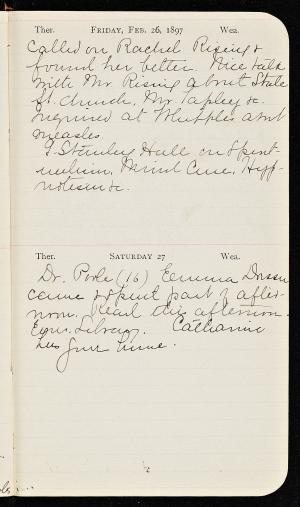 Ther. FRIDAY, FEB. 26, 1897 Wea.
Called on Rachel Rising &
found her better. Nice talk
with Mr. Rising about State
St. church, Mr. Tapley &c.
Inquired at Whipples abt
measles.
G. Stanley Hall on Spirit-
ualism, Mind Cure, Hyp-
notism &c.
Ther. SATURDAY 27 Wea.
Dr. Poole (16) Emma
came & spent part of after-
noon. Read this afternoon.
Eyrs. Library. Catharine
has gone home.